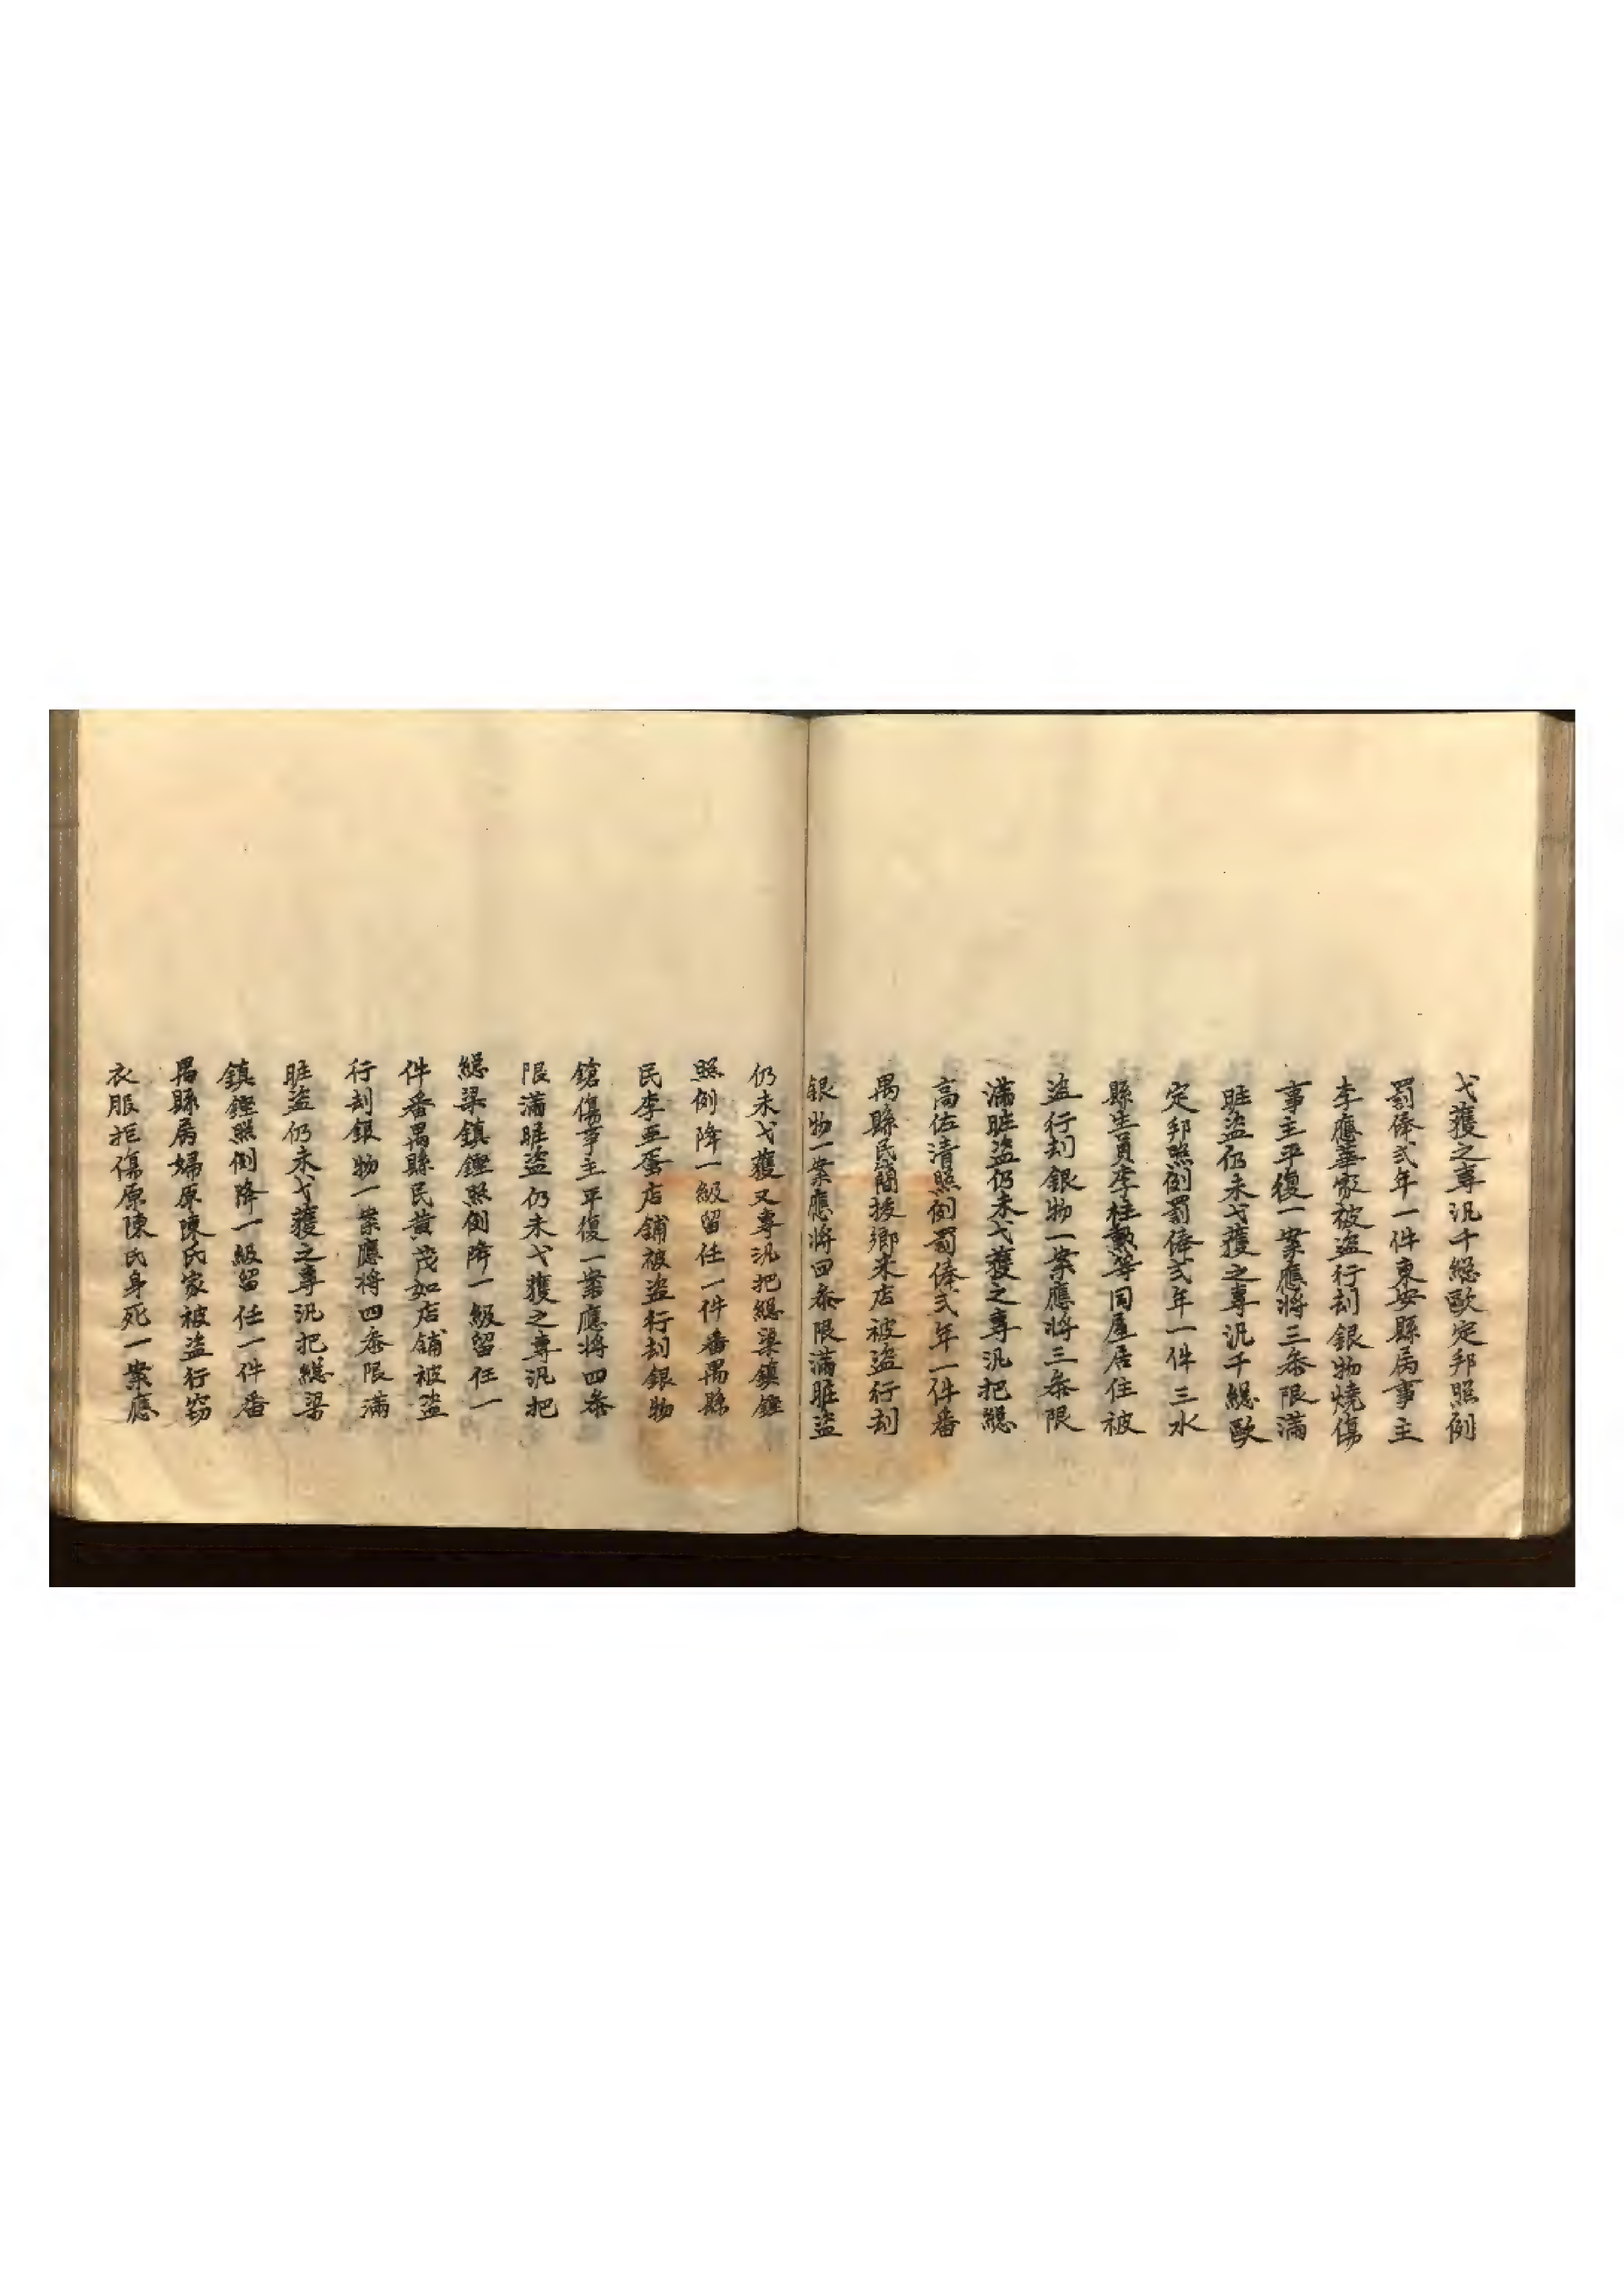 弋獲之專汛千緫歐定邦照例
罰俸弍年一件東安縣屬事主
李應華家被盗行刦銀物燒傷
事主平復一案應將三叅限滿
賍盗仍未弋獲之專汛千緫歐
定邦照例罰俸弍年一件三水
縣生員李桂𤋮等同屋居住被
盗行刦銀物一案應將三叅限
滿賍盗仍未弋獲之專汛把緫
高佐清照例罰俸弍年一件番
禺縣民簡拔鄉来店被盗行刦
銀物一案應將四叅限滿賍盗
仍未弋獲又專汛把緫梁鎮鏗
照例降一級留任一件番禺縣
民李亞蛋店舖被盗行刦銀物
鎗傷事主平復一案應將四叅
限滿賍盗仍未弋獲之專汛把
緫梁鎮鏗照例降一級留任一
件番禺縣民黄茂如店舖被盗
行刦銀物一案應將四叅限滿
賍盗仍未弋獲之專汛把緫梁
鎮鏗照例降一級留任一件番
禺縣屬婦原陳氏家被盗行窃
衣服拒傷原陳氏身死一案應